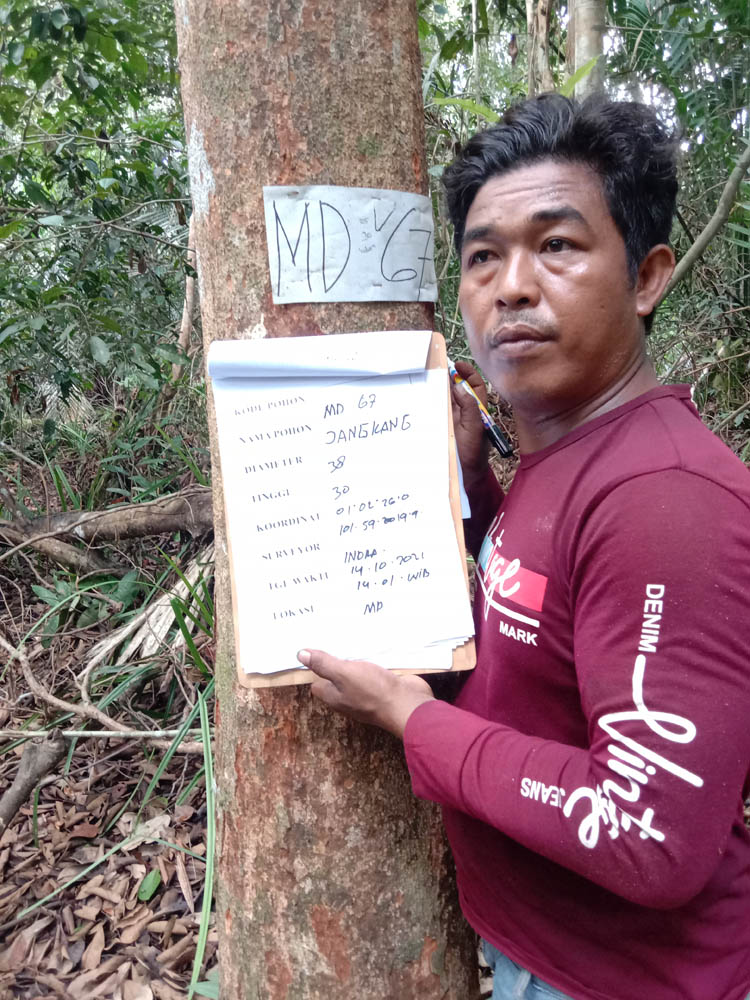 MD 67
KODE POHON MD 67
NAMA POHON JANGKANG
DIAMETER 38
TINGGI 30
KOORDINAT 01.02.26.0
101.59.2019.9
SURVEYOR INDRA.
TGL WAKTU 14.10.2021
14.01.WIB
LOKASI MD
MARK
DENIM
Vinte
JEANS